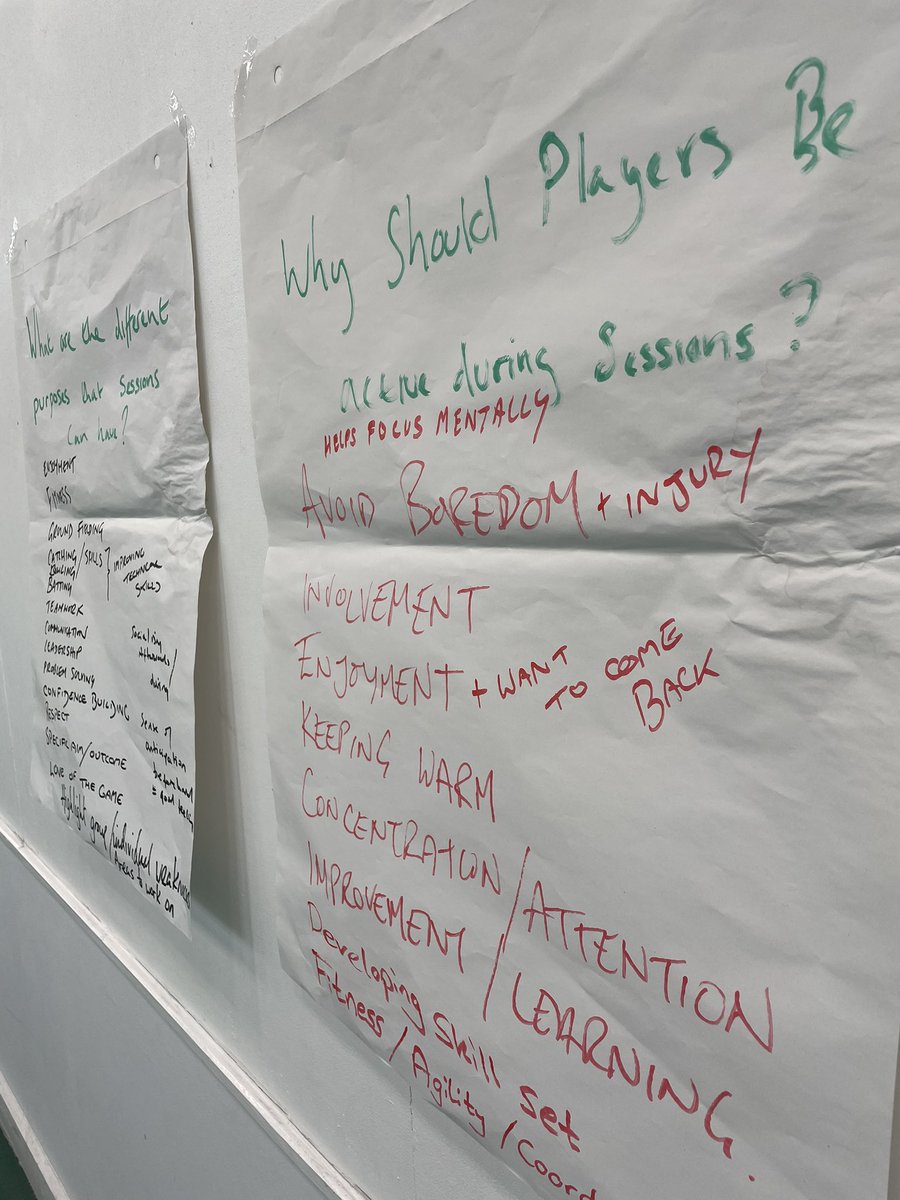 What are the different
purposes that Sessions
Can have?
ENJOYMENT
FITNESS
GROUND FIELDING
CATCHING / SKILLS
BOWLING/
BATTING
IMPROVING
TECHNICAL
SKILLS
TEAMWORK
COMMUNICATION
LEADERSHIP
PROBLEM SOLVING
CONFIDENCE BUILDING
RESPECT
SPECIFIC AIM/OUTCOME
LOVE OF THE GAME
Highlight group/individual weakness
AREAS to work on
Socialising
afterwards/
during
Sense of
anticipation
beforehand
= good feeling
Why Should Players Be
active during Sessions?
HELPS FOCUS MENTALLY
AVOID BOREDOM + INJURY
INVOLVEMENT
ENJOYMENT + WANT
TO COME
BACK
KEEPING WARM
CONCENTRATION / ATTENTION
IMPROVEMENT / LEARNING.
Developing Skill Set
Fitness / Agility / Coord